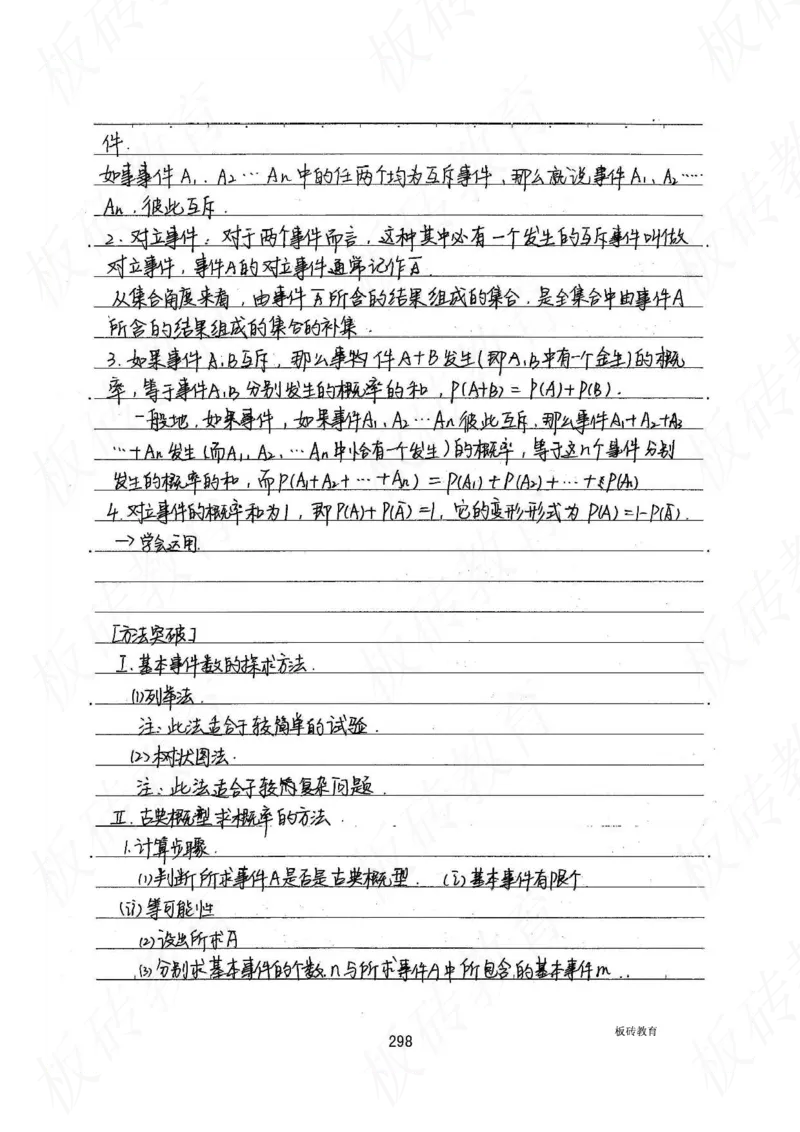 件.
如事事件A₁、A₂…An中的任两个均为互斥事件，那么就说事件A₁、A₂……
An.彼此互斥.
2.对立事件：对于两个事件而言，这种其中必有一个发生的互斥事件叫做
对立事件，事件A的对立事件通常记作A̅.
从集合角度来看，由事件A̅所含的结果组成的集合.是全集合中由事件A
所含的结果组成的集合的补集.
3.如果事件A,B互斥，那么事物件A+B发生(即A,B中有一个发生)的概
率，等于事件A,B分别发生的概率的和，P(A+B)=P(A)+P(B).
一般地，如果事件，如果事件A₁、A₂…An彼此互斥，那么事件A₁+A₂+A₃
…+An发生(而A₁,A₂,…An中恰有一个发生)的概率，等于这n个事件分别
发生的概率的和，而P(A₁+A₂+…+An)=P(A₁)+P(A₂)+…+P(An)
4.对立事件的概率和为1，即P(A)+P(A̅)=1，它的变形形式为P(A)=1-P(A̅).
→学会运用.
[方法突破]
Ⅰ.基本事件数的探求方法.
(1)列举法.
注：此法适合于较简单的试验.
(2)树状图法.
注：此法适合于较复杂问题.
Ⅱ.古典概型求概率的方法.
1.计算步骤.
(1)判断所求事件A是否是古典概型. (i)基本事件有限个
(ii)等可能性
(2)设出所求A
(3)分别求基本事件的个数n与所求事件A中所包含的基本事件m.
298
板砖教育